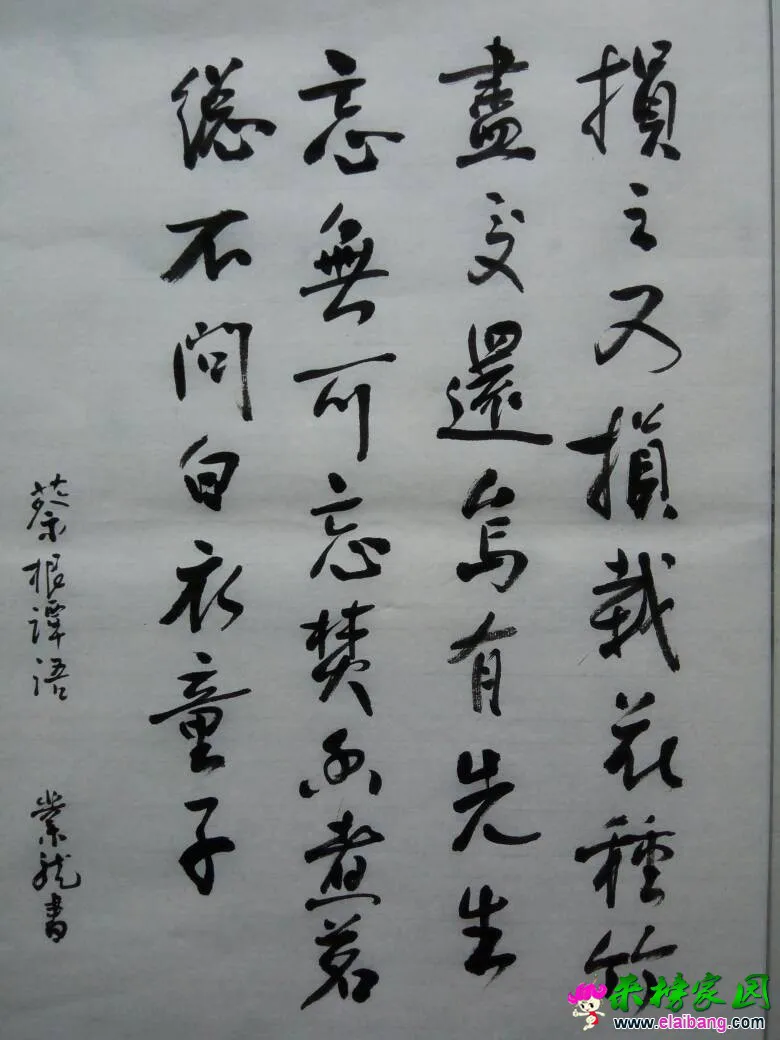 損之又損栽花種竹
盡交還烏有先生
忘無可忘焚香煮茗
總不問白衣童子
菜根譚語 業龍書
来榜家园
www.elaibang.com